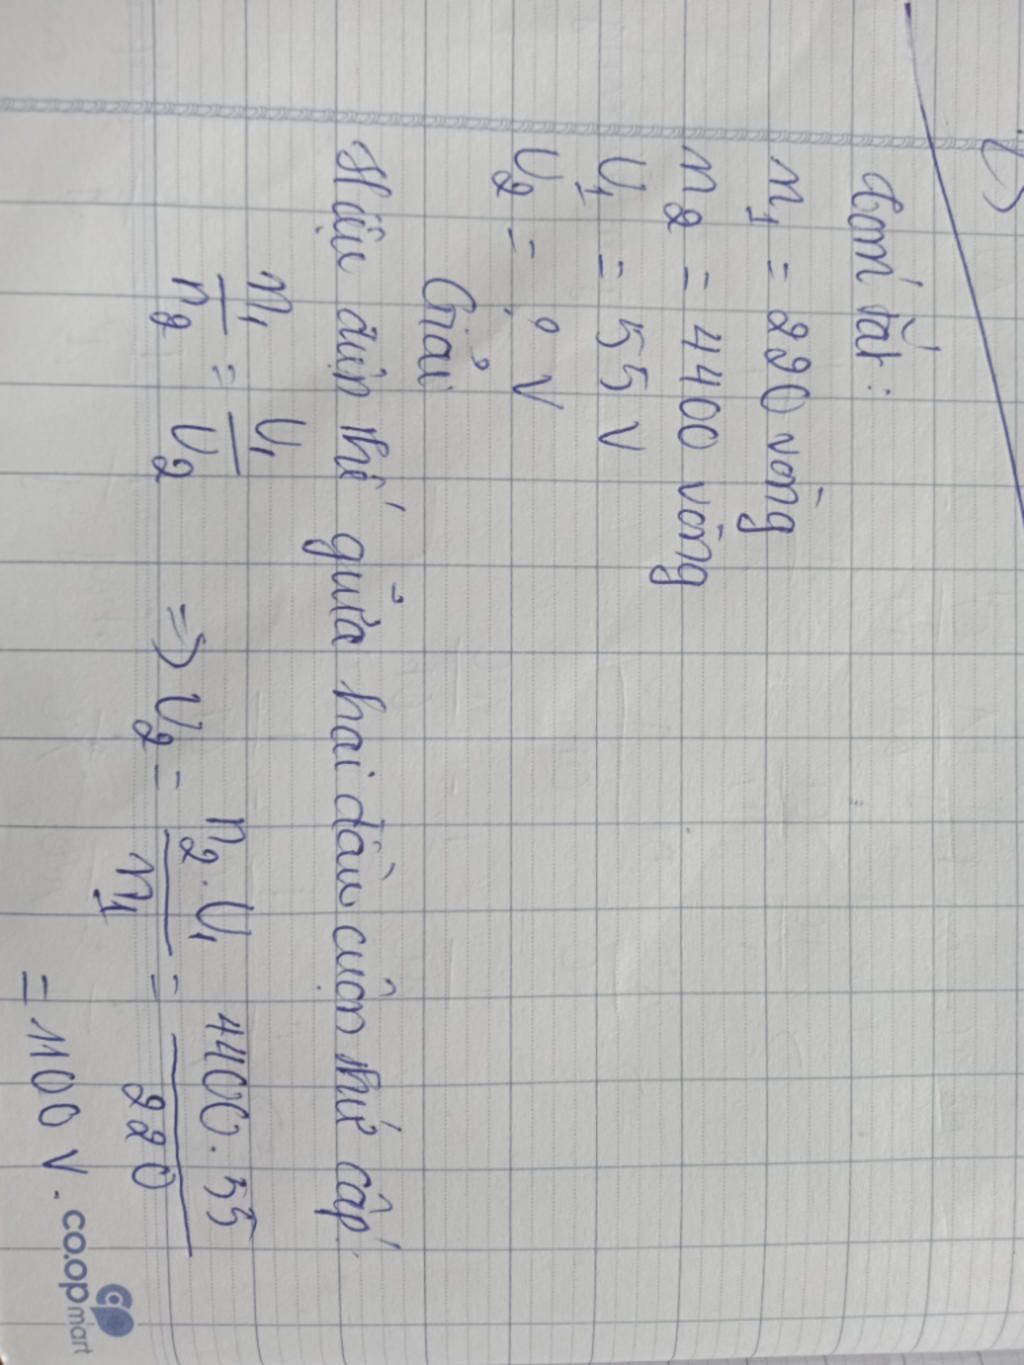 Tóm tắt:
n₁ = 220 vòng
n₂ = 4400 vòng
U₁ = 55 V
U₂ = ? V
Giải
Hiệu điện thế giữa hai đầu cuộn thứ cấp:
n₁/n₂ = U₁/U₂ => U₂ = n₂.U₁/n₁ = 4400.55/220
= 1100 V.
co.opmart